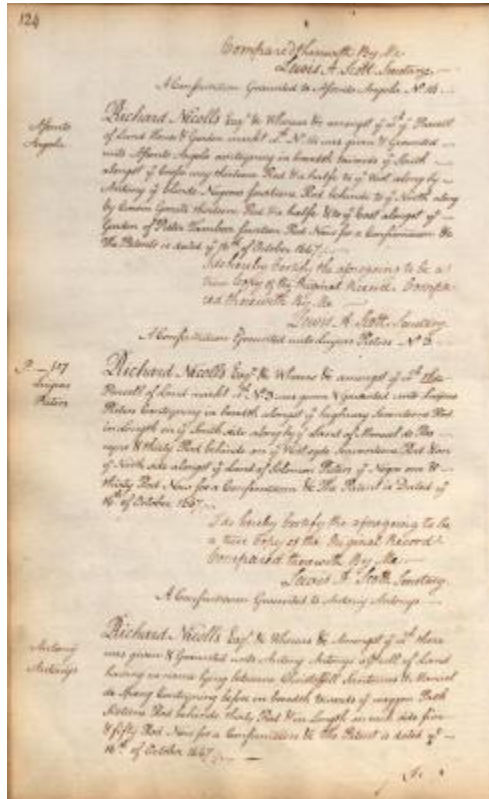 124
Compared therewith By Me
Lewis A Scott Secretary
A Confirmation Graunted to Assento Angola No. 14
Assento
Angola
Richard Nicolls Esqr &c Whereas &c amongst ye Parcell
of Land House & Garden markt Lt. No. 14 was given & Graunted
unto Assento Angola conteyning in breadth towards ye South
alongst ye thirteen Rod & a halfe to ye West along by
Antony ye blinde Negroes fourteen Rod behinde to ye North along
by thirteen Rod & a halfe & to ye East alongst ye
Garden of Pieter fourteen Rod Now for a Confirmation &c
The Patent is dated ye 16th of October 1667
I do hereby Certify the aforegoing to be a
true Copy of the Original Record Compa-
red therewith By Me
Lewis A Scott Secretary
A Confirmation Graunted unto Lucas Pieters No. 3
P. 127
Lucas
Pieters
Richard Nicolls Esqr &c Whereas &c amongst ye
Parcell of Land markt Lt. No. 3 was given & Graunted unto Lucas
Pieters Conteyning in breadth alongst ye highway Seventeen Rod
in Length on ye South side along by ye Land of Manuel de
& thirty Rod behinde on ye West syde Seventeen Rod & on
ye North side alongst ye Land of Solomon Pieters ye Negro one &
thirty Rod Now for a Confirmation &c The Patent is Dated ye
16th of October 1667
I do hereby Certify the aforegoing to be
a true Copy of the Original Record
Compared therewith By Me
Lewis A Scott Secretary
A Confirmation Graunted to Antony Antonys
Antony
Antonys
Richard Nicolls Esqr &c Whereas &c Amongst ye there
was given & Graunted unto Antony Antonys a of Land
having no name lying between Christofell Santomes & Manuel
de Conteyning before in breadth towards ye waggon Path
Sixteen Rod behinde thirty Rod & in Length on each side five
& fifty Rod Now for a Confirmation &c The Patent is dated ye
16th of October 1667